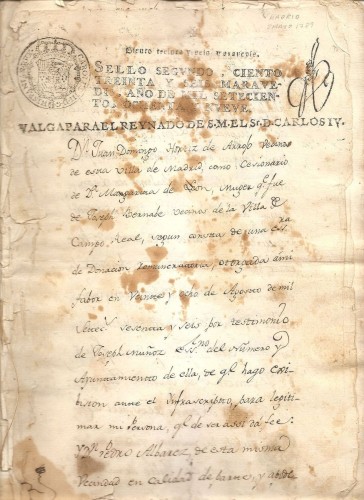 MADRID
Ciento treinta y seis maravedis.
SELLO SEGUNDO, CIENTO
TREINTA Y SEIS MARAVE-
DIS, AÑO DE MIL SETECIEN-
TOS OCHENTA Y NUEVE.
VALGA PARA EL REYNADO DE S. M. EL Sr. D. CARLOS IV.
Dn. Juan Domingo de Arroyo vecino
de esta Villa de Madrid, como Cesionario
de Da. Margarita de Leon, Muger q.e fue
de Joseph Bernabe vecinos de la Villa de
Campo Real, segun consta de una Essra
de Donacion remuneratoria, otorgada a mi
fabor en Veinte y ocho de Agosto de mil
setecs. sesenta y seis por testimonio
de Joseph Muñoz Essno del Numero y
Ayuntamiento de ella, de q.e hago exi-
bision ante el infraescripto, para legiti-
mar mi Persona, q.e de ser asi da fee:
y Dn. Pedro Albarez de esta misma
Vecindad en calidad de